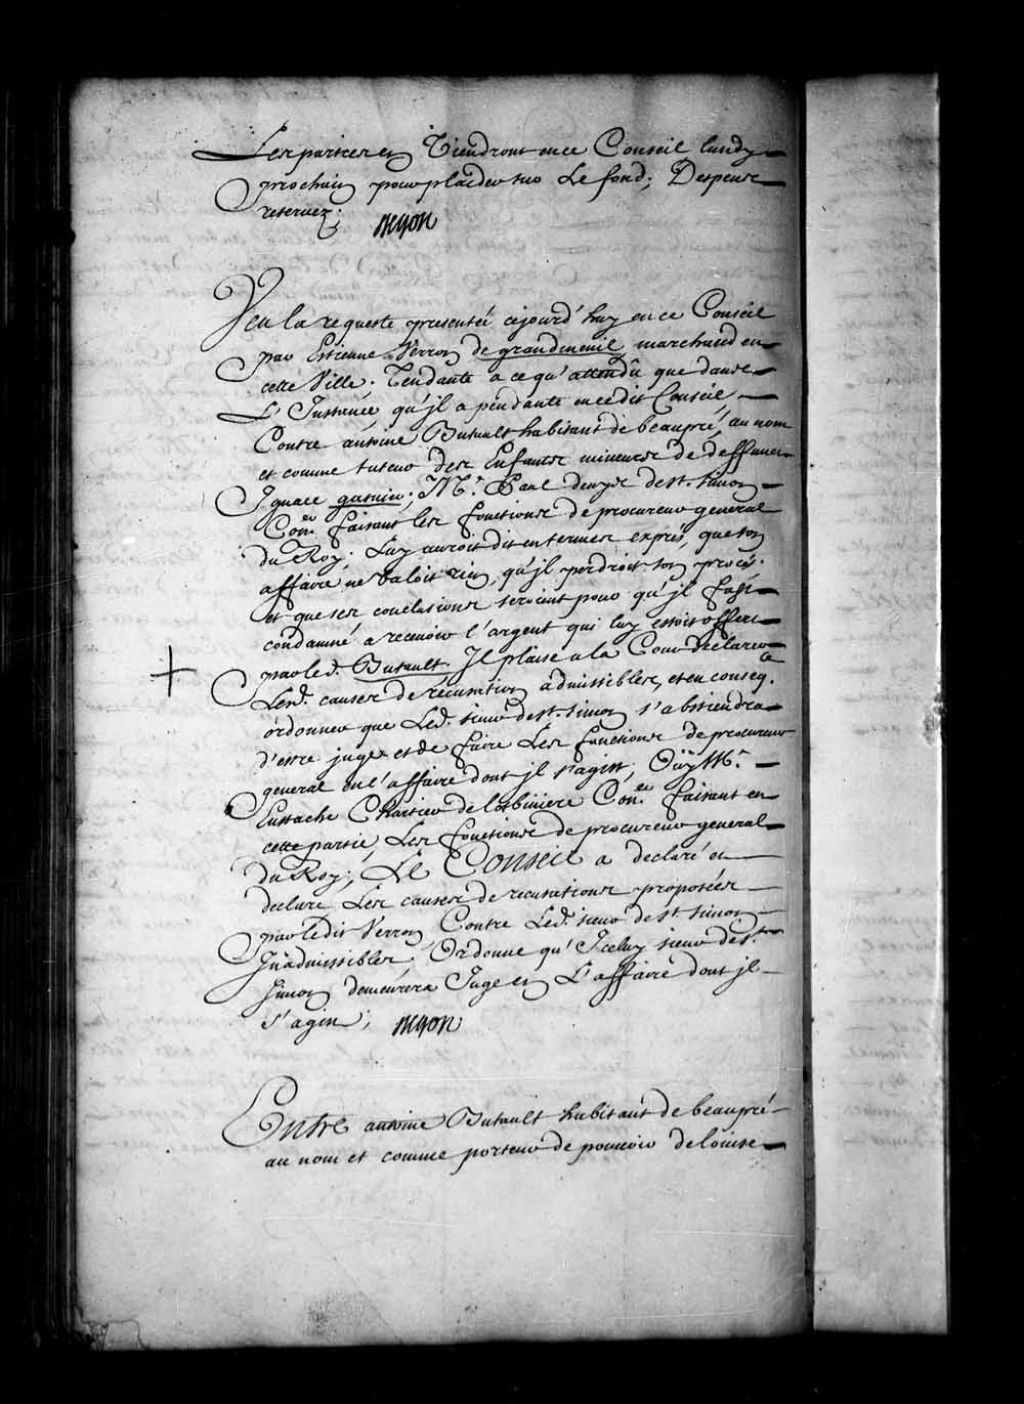 Les parties en Viendront en ce Conseil lundy
prochain pour plaider sur Le fond; Despens
reservez;
Begon
Veu la requeste presentée cejourd'huy en ce Conseil
par Estienne Verron de grandmenil marchand en
cette Ville. Tendante a ce qu'attendû que dans
L'Instance qu'jl a pendante en cedit Conseil
Contre antoine Butault habitant de beaupré, au nom
et comme tuteur des Enfants mineurs de deffunct
Ignace gasnier; Mr. Paul denys de st. simon
Coner. faisant les fonctions de procureur general
du Roy; Luy auroit dit en termes exprés, que son
affaire ne Valoit rien, qu'jl perdroit son procés.
et que ses conclusions seroient pour qu'jl fust
condamné a recevoir l'argent qui luy estoit offert
par led. Butault. Il plaise a la Cour declarer
Lesd. causes de récusation admissibles, et en conseqce.
ordonner que Led. sieur de st. simon s'abstiendra
d'estre juge et de faire Les fonctions de procureur
general en l'affaire dont jl s'agist; Oüy Mr.
Eustache Chartier de lotbiniere Coner. faisant en
cette partie, Les fonctions de procureur general
du Roy; Le Conseil a declaré et
declare Les causes de recusations proposées
par ledit Verron Contre Led. sieur de st. simon
Inadmissibles; Ordonne qu'Iceluy sieur de st.
simon demeurera Juge en L'affaire dont jl
s'agist;
Begon
Entre antoine Butault habitant de beaupré
au nom et comme porteur de pouvoir de louise